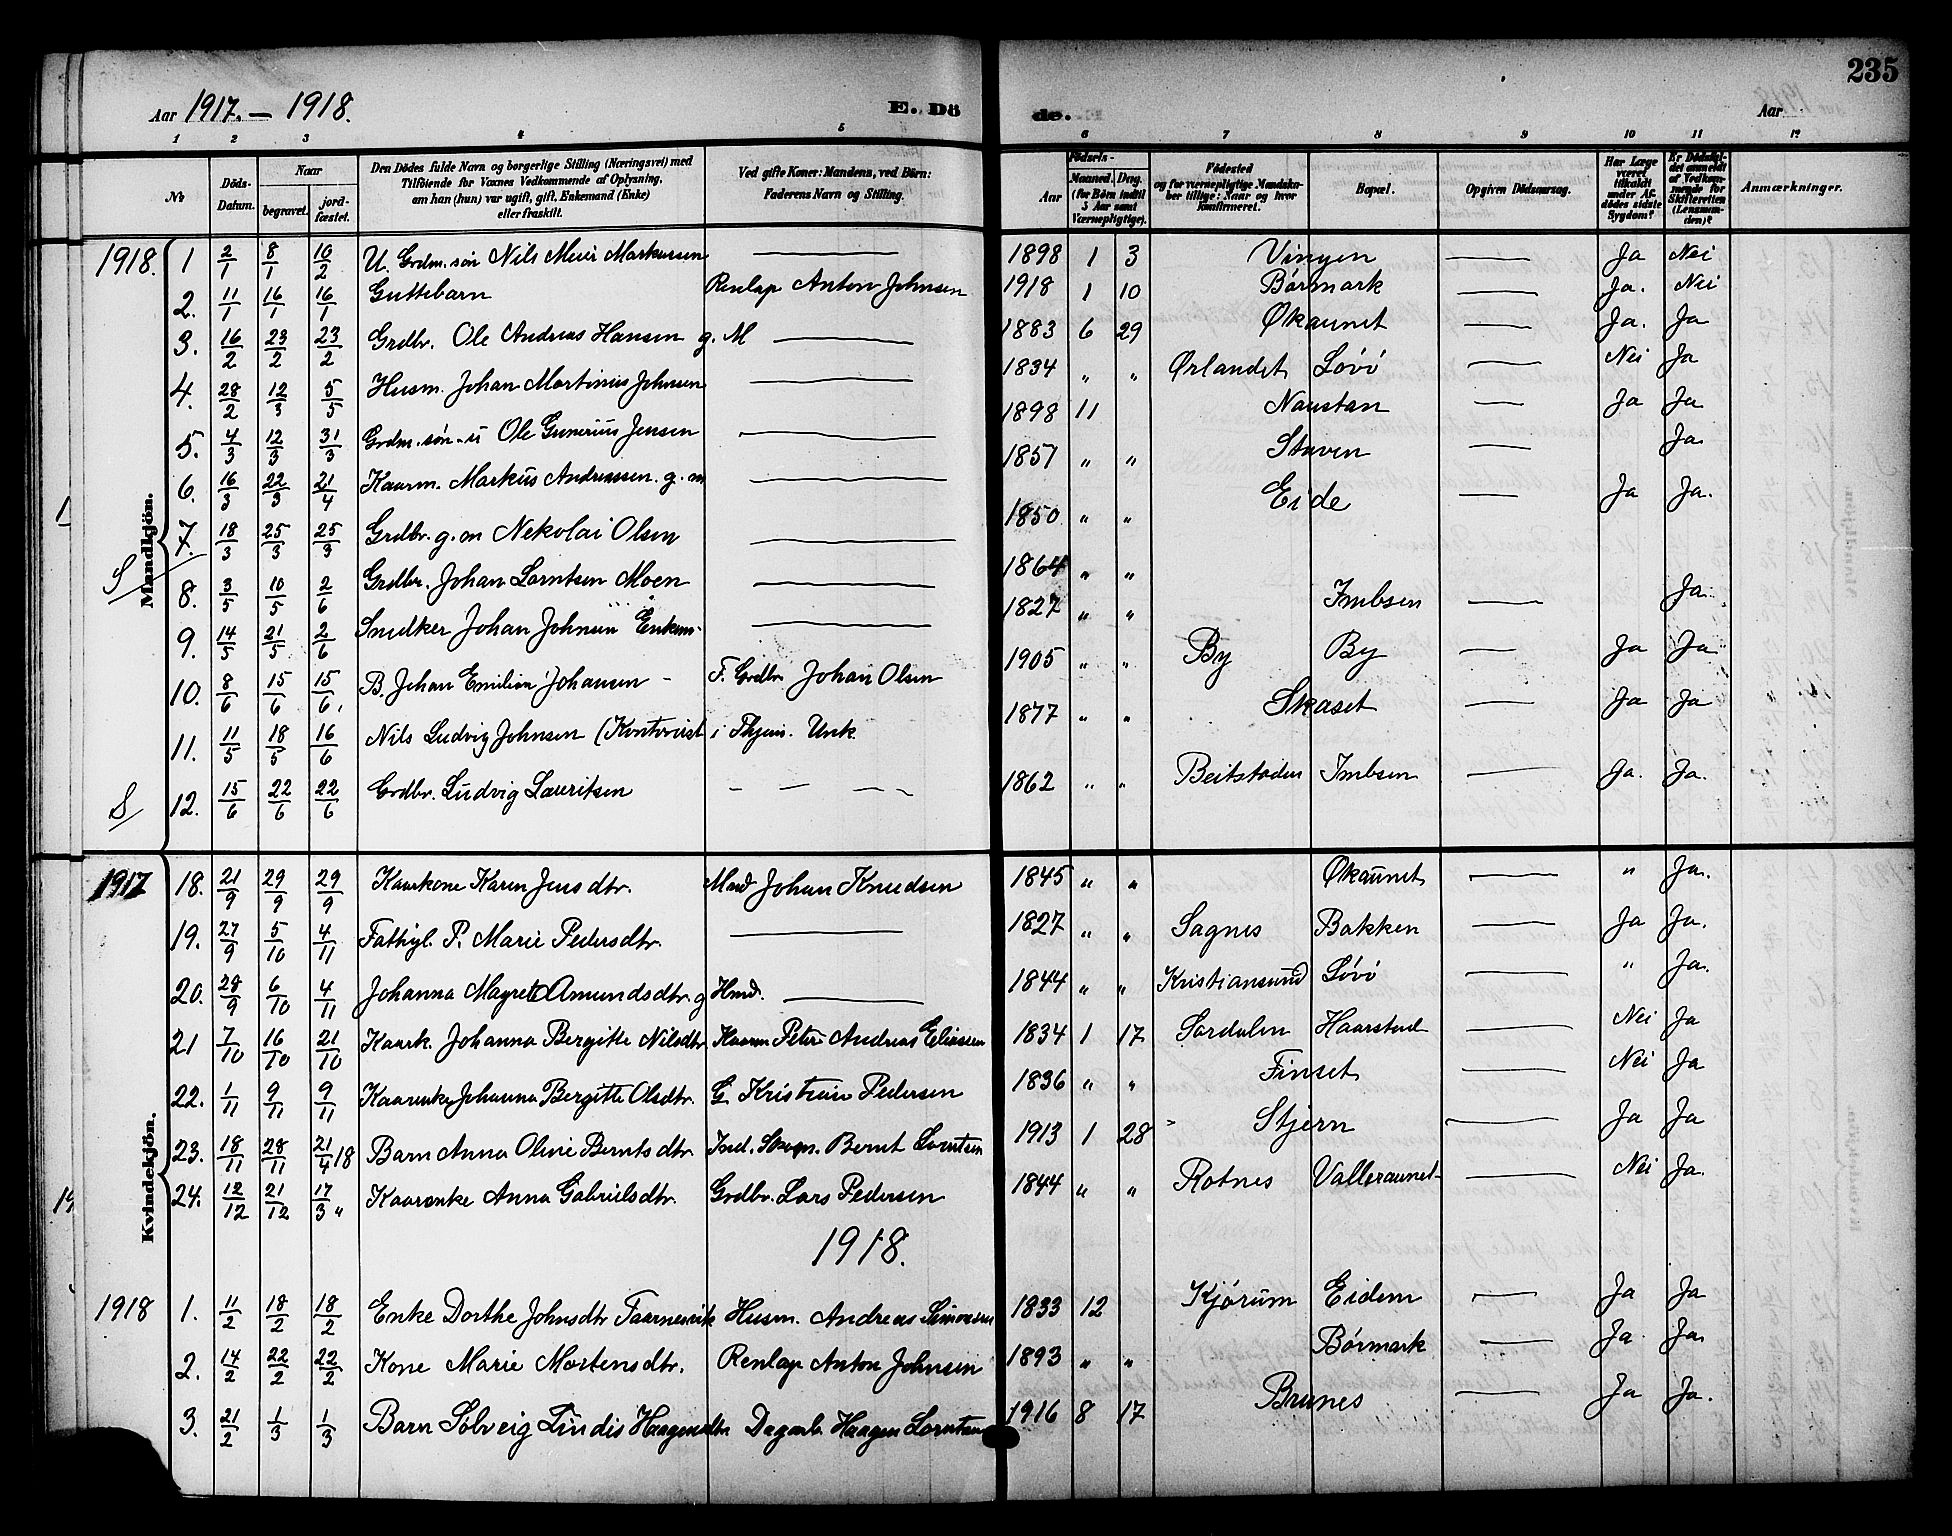 235
Aar 1917. – 1918. E. Dö de. Aar
1 2 3 4 5 6 7 8 9 10 11 12
№ Döds-Datum. Naar begravet. jordfæstet. Den Dödes fulde Navn og borgerlige Stilling (Næringsvei) med Tilföiende for Voxnes Vedkommende af Oplysning, om han (hun) var ugift, gift, Enkemand (Enke) eller fraskilt. Ved gifte Koner: Mandens, ved Börn: Faderens Navn og Stilling. Födsels- Aar Maaned. Dag. (for Börn indtil 5 Aar samt Værnepligtige). Födested og for værnepligtige Mandskaber tillige: Naar og hvor konfirmeret. Bopæl. Opgiven Dödsaarsag. Har Læge været tilkaldt under Afdödes sidste Sygdom? Er Dödsfaldet anmeldt af Vedkommende for Skifteretten (Lensmanden)? Anmærkninger.
Mandkjön.
1918. 1 2/1 8/1 10/2 U. Grdm. søn Nils Meier Markussen — 1898 1 3 Vingen — Ja Nei
2. 11/1 16/1 16/1 Guttebarn Renlap Anton Johnsen 1918 1 10 Børmark — Ja. Nei
3. 16/2 23/2 23/2 Grdbr. Ole Andreas Hansen g. M — 1883 6 29 Økaunet — Ja. Ja
4. 28/2 12/3 5/5 Husm. Johan Martinus Johnsen — 1834 " " Ørlandet Løvö — Nei Ja
5. 4/3 12/3 31/3 Grdm. søn - u Ole Gunerius Jensen — 1898 11 Naustan — Ja Ja
6. 16/3 22/3 21/4 Kaarm. Markus Andreassen. g. m — 1857 " " Staven — Ja.
S 7. 18/3 25/3 25/3 Grdbr. g. m Nekolai Olsen — 1850 " " Eide — Ja Ja.
8. 3/5 10/5 2/6 Grdbr. Johan Lorntsen Moen — 1864 " "
9. 14/5 21/5 2/6 Snedker Johan Johnsen Enkem. — 1827 " " Imbsen — Ja
10. 8/6 15/6 15/6. B. Johan Emilian Johansen - F. Grdbr Johan Olsen 1905 " " By By — Ja Ja
11. 11/5 18/5 16/6 Nils Ludvig Johnsen (Kontorist i Thjem. Unk. 1877 " " Skaset — Ja Ja
S 12. 15/6 22/6 22/6 Grdbr. Ludvig Lauritsen — 1862 " " Beitstaden Imbsen — Ja. Ja.
Kvindekjön.
1917 18. 21/9 29/9 29/9 Kaarkone Karen Jensdtr. Mand Johan Knudsen 1845 " " Økaunet — " Ja.
19. 27/9 5/10 4/11 Fattigl. P. Marie Pedersdtr. — 1827 " " Sagnes Bakken — Ja Ja.
20. 28/9 6/10 4/11 Johanna Magrete Amundsdtr. g Hmd. — 1844 " " Kristiansund Løvö — " Ja.
21 7/10 16/10 21/10 Kaark. Johanna Bergitte Nilsdtr. Kaarm Peter Andreas Eliassen 1834 1 17 Sardalen Haarstad — Nei Ja
22. 1/11 9/11 9/11 Kaarenke Johanna Bergitte Olsdtr. G. Kristian Pedersen 1836 " " Finset — Nei Ja
23. 18/11 28/11 21/4 18 Barn Anna Oline Berntsdtr. Ind. Bernt Lorntsen 1913 1 28 Stjern — Ja Ja
24. 12/12 21/12 17/3 " Kaarenke Anna Gabrielsdtr. Grdbr. Lars Pedersen 1844 " " Rotnes Valleraunet — Nei Ja.
1918.
1918 1. 11/2 18/2 18/2 Enke Dorthe Johnsdtr Taarnesvik Husm. Andreas Simonsen 1833 12 Kjørum Eidem — Ja Ja
2. 14/2 22/2 22/2 Kone Marie Mortensdtr. Renlap Anton Johnsen 1893 " " Børmark — Ja. Ja.
3. 21/2 1/3 1/3 Barn Solveig Lindis Haagensdtr Dagarb. Haagen Lorntsen 1916 8 17 Brunes — Ja Ja.